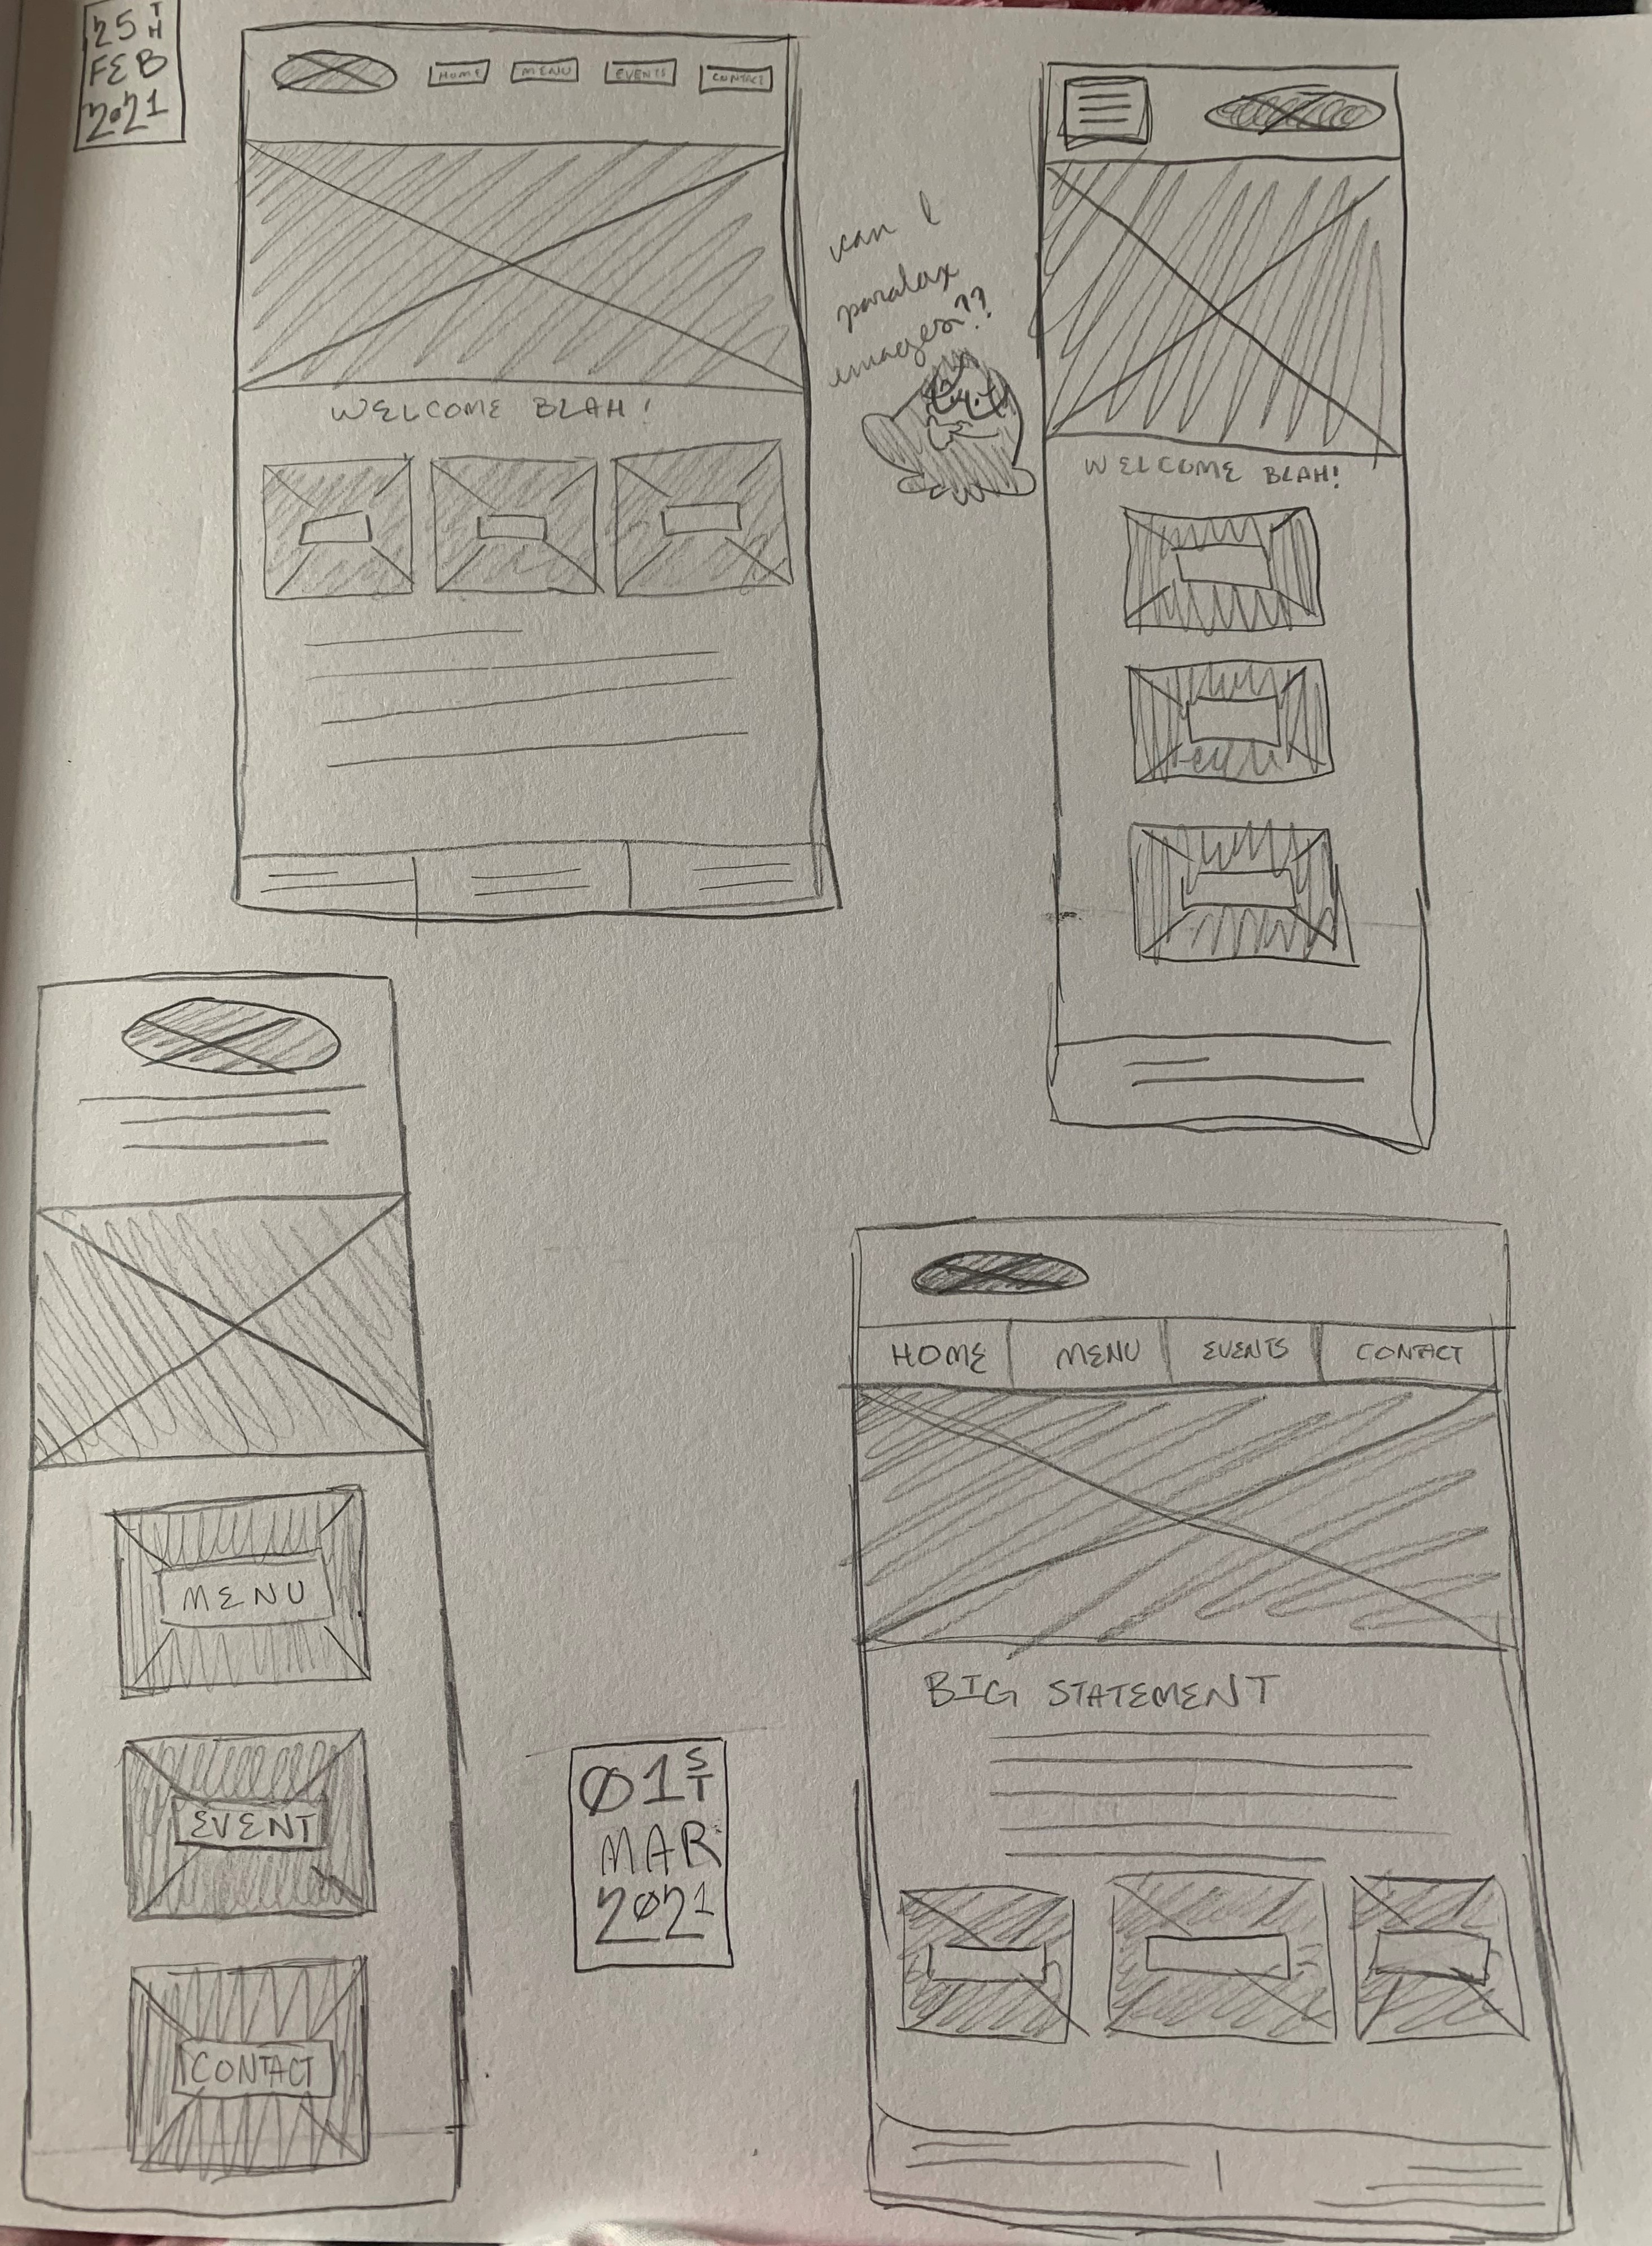 25TH
FEB
2021
HOME MENU EVENTS CONTACT
WELCOME BLAH!
can I
paralax
images??
WELCOME BLAH!
MENU
EVENT
CONTACT
01ST
MAR
2021
HOME MENU EVENTS CONTACT
BIG STATEMENT